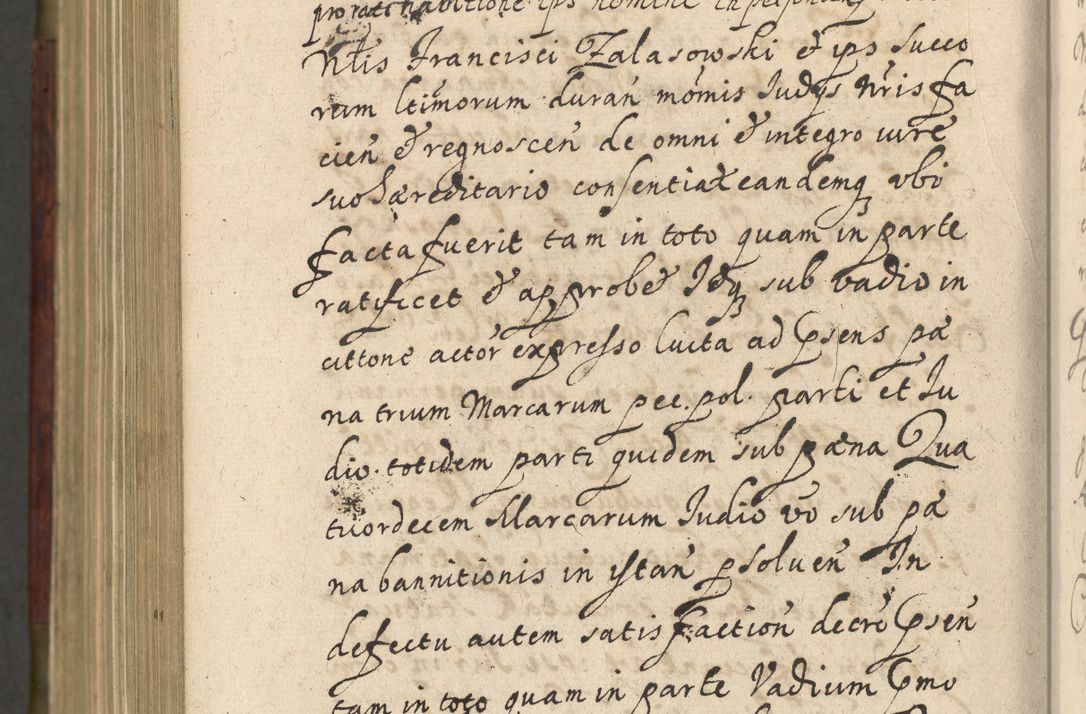 pro ratihabitione ips nomine
Ntis Francisci Zalasowski et ips succo
rum ltimorum duran momis Iudqs nris fa
cien et regnoscen de omni et integro iure
suo hæreditario consentiat eandemq ubi
facta fuerit tam in toto quam in parte
ratificet et approbet Idq sub vadio in
cittone actor expresso luita ad psens pæ
na trium Marcarum pec. pol. parti et Iu
dio totidem parti quidem sub pæna Qua
tuordecem Marcarum Iudio vo sub pæ
na bannitionis in istan psoluen In
defectu autem satisfaction decre psen
tam in toto quam in parte Vadium pmo